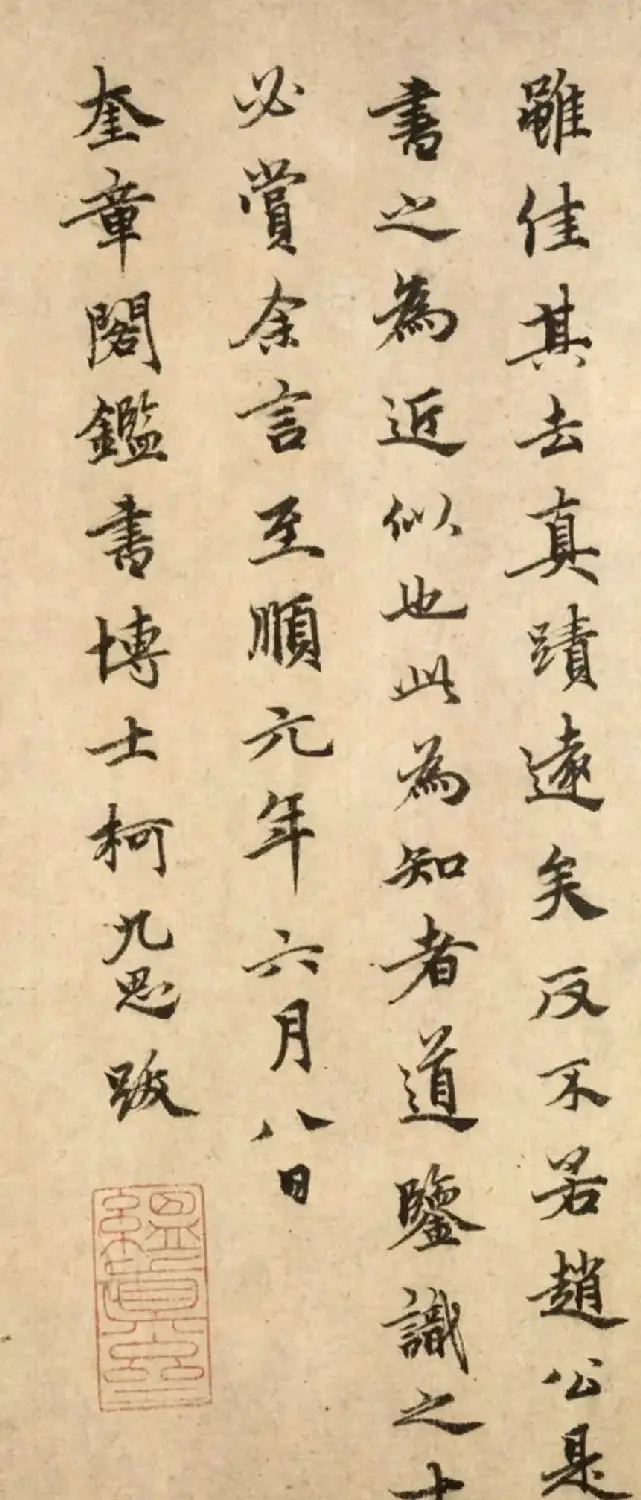 雖佳其去真蹟遠矣反不若趙公是
書之為近似也此為知者道鑒識之士
必賞余言至順元年六月八日
奎章閣鑑書博士柯九思跋
緼真堂